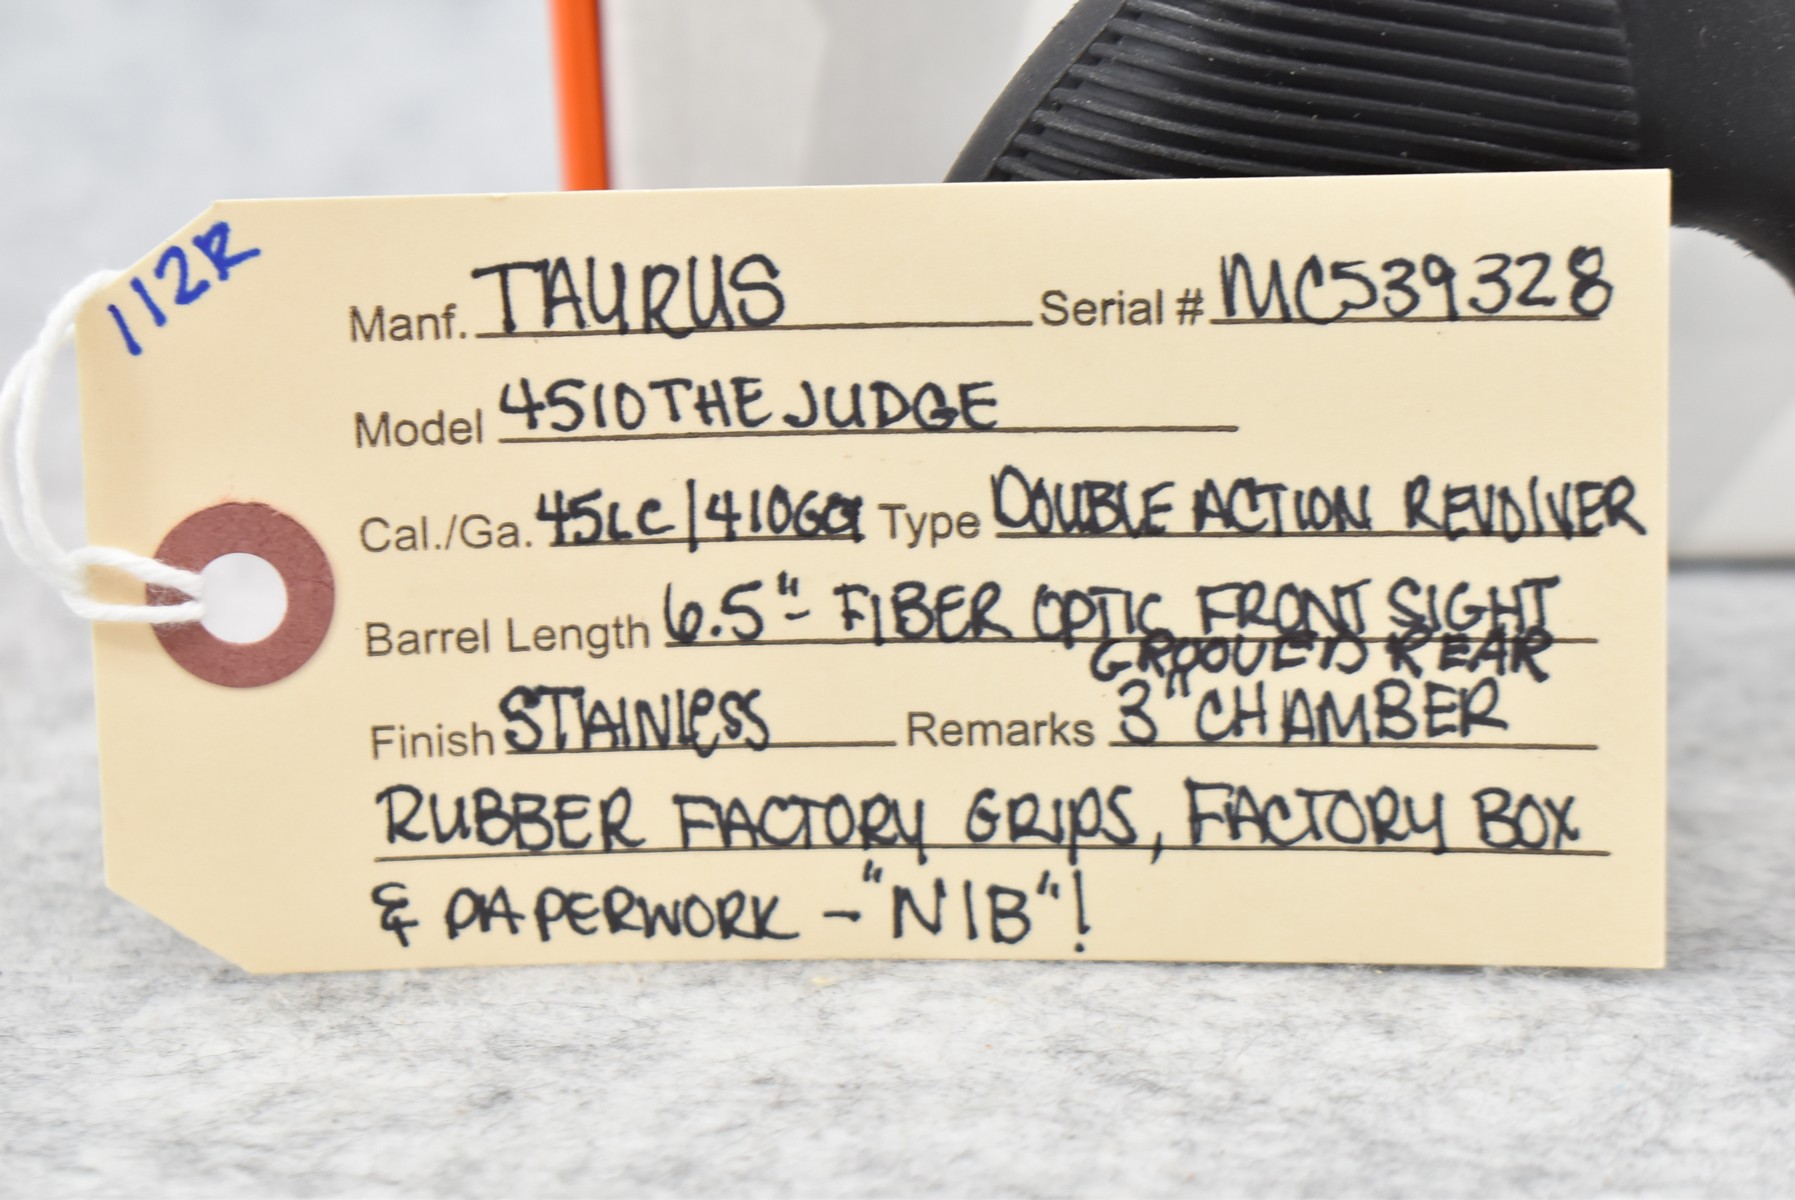 112R
Manf. TAURUS Serial # MC539328
Model 4510 THE JUDGE
Cal./Ga. 45LC/410GA Type DOUBLE ACTION REVOLVER
Barrel Length 6.5"- FIBER OPTIC FRONT SIGHT
GROOVED REAR
Finish STAINLESS Remarks 3" CHAMBER
RUBBER FACTORY GRIPS, FACTORY BOX
& PAPERWORK - "NIB"!